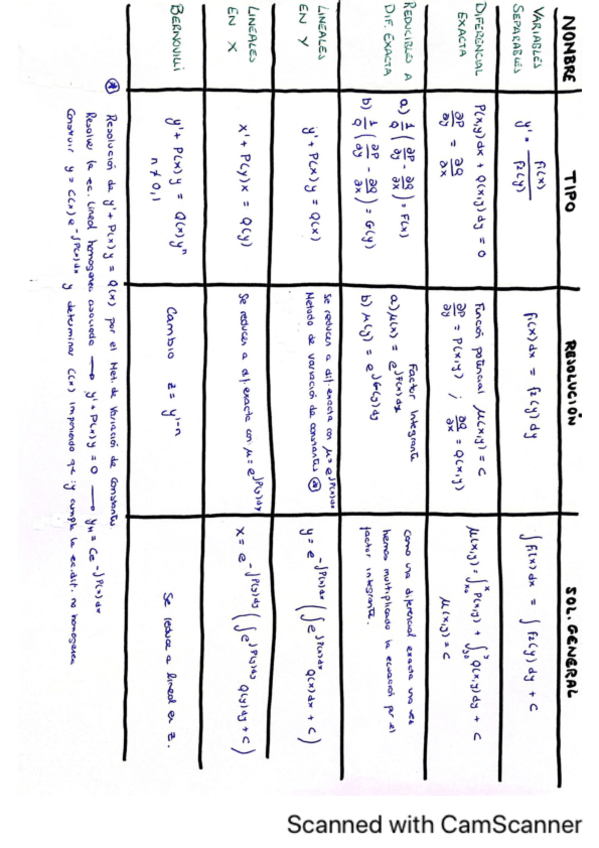 NOMBRE TIPO RESOLUCIÓN SOL. GENERAL
VARIABLES SEPARABLES
y' = f₁(x) / f₂(y)
f₁(x) dx = f₂(y) dy
∫ f₁(x) dx = ∫ f₂(y) dy + C
DIFERENCIAL EXACTA
P(x,y) dx + Q(x,y) dy = 0
∂P/∂y = ∂Q/∂x
Función potencial μ(x,y) = C
∂P/∂y = P(x,y) ; ∂Q/∂x = Q(x,y)
μ(x,y) = ∫ₓ₀ˣ P(x,y) + ∫ᵧ₀ʸ Q(x,y) dy + C
μ(x,y) = C
REDUCIBLES A DIF. EXACTA
a) 1/Q (∂P/∂y - ∂Q/∂x) = F(x)
b) 1/Q (∂P/∂y - ∂Q/∂x) = G(y)
Factor Integrante
a) μ(x) = e^∫F(x)dx
b) μ(y) = e^∫G(y)dy
como una diferencial exacta una vez
hemos multiplicado la ecuación por el
factor integrante.
LINEALES EN Y
y' + P(x) y = Q(x)
Se reducen a dif. exacta con μ = e^∫P(x)dx
Método de variación de constantes ⊛
y = e^-∫P(x)dx (∫ e^∫P(x)dx Q(x) dx + C)
LINEALES EN X
x' + P(y) x = Q(y)
Se reducen a dif. exacta con μ = e^∫P(y)dy
x = e^-∫P(y)dy (∫ e^∫P(y)dy Q(y) dy + C)
BERNOUILLI
y' + P(x) y = Q(x) yⁿ
n ≠ 0,1
Cambio z = y¹⁻ⁿ
Se reduce a lineal en z.
⊛ Resolución de y' + P(x) y = Q(x) por el Met. de Variación de Constantes
Resolver la ec. lineal homogenea asociada → y' + P(x) y = 0 → yH = Ce^-∫P(x)dx
Construir y = C(x) e^-∫P(x)dx y determinar C(x) imponiendo que y cumpla la ec. dif. no homogenea
Scanned with CamScanner